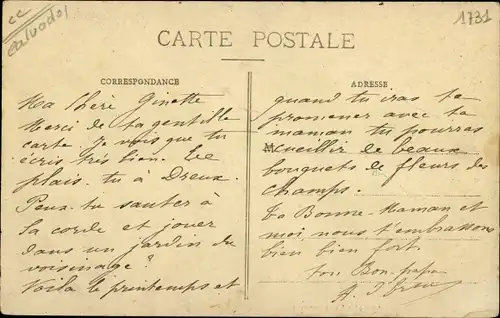 cc
Calvados
1731
CARTE POSTALE
CORRESPONDANCE
Ma Chère Ginette
Merci de ta gentille
carte. Je vois que tu
écris très bien. Te
plais-tu à Dreux.
Peux-tu sauter à
la corde et jouer
dans un jardin du
voisinage?
Voilà le printemps et
ADRESSE
quand tu iras te
promener avec ta
maman tu pourras
cueillir de beaux
bouquets de fleurs des
champs.
Ta Bonne-Maman et
moi nous t'embrassons
bien bien fort.
ton Bon-papa
A.